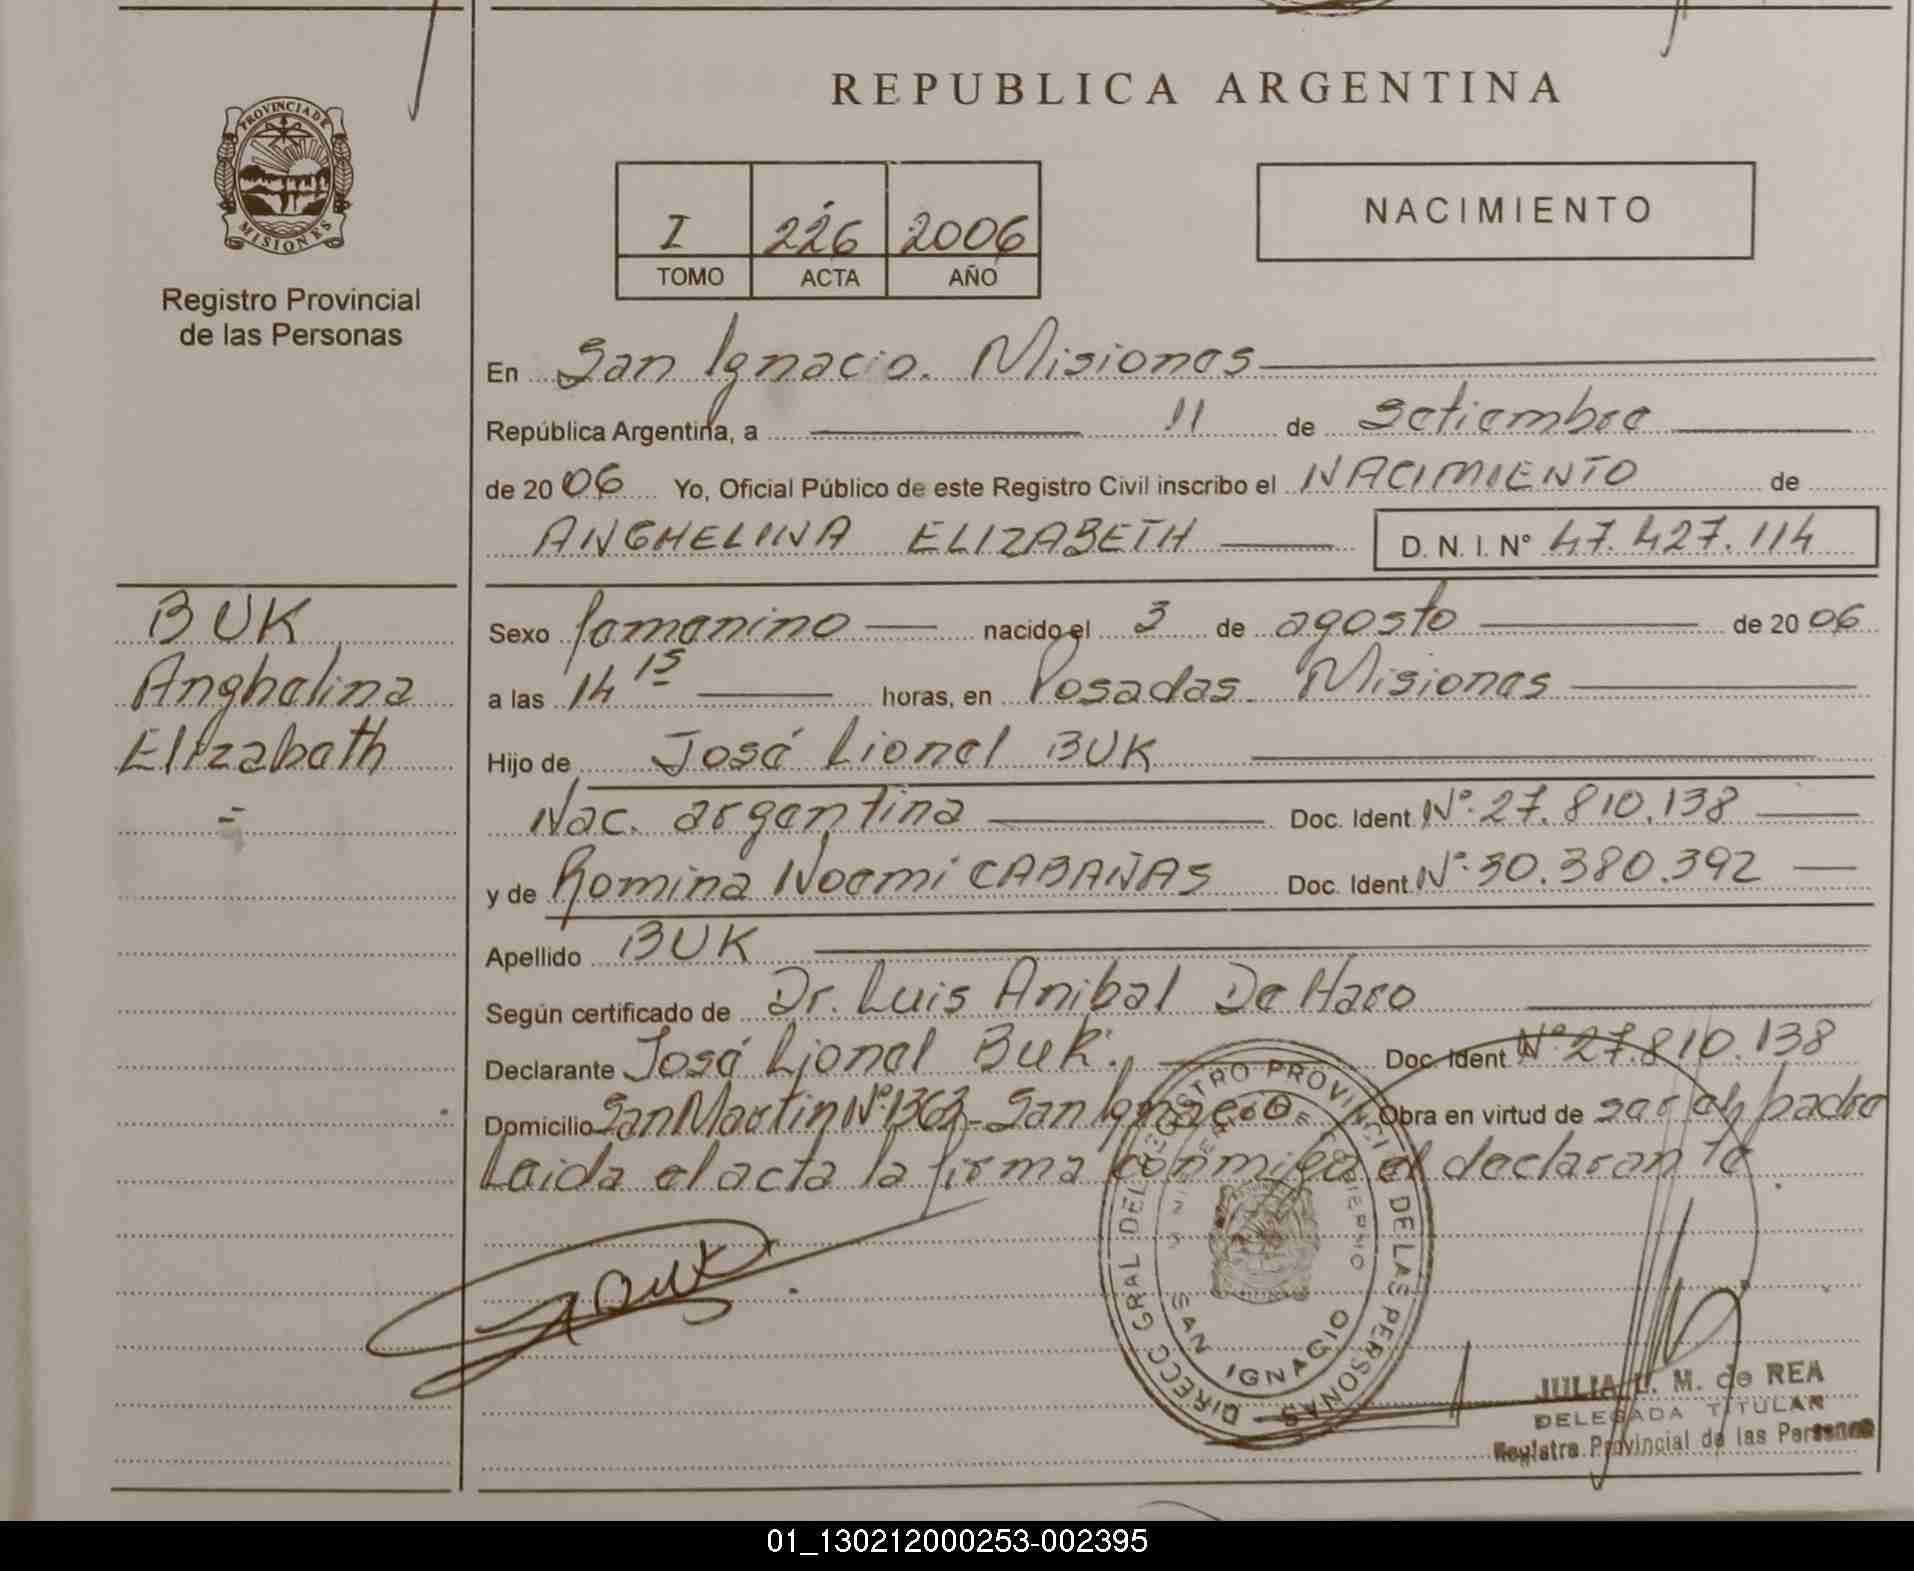 PROVINCIA DE
MISIONES
Registro Provincial
de las Personas
REPUBLICA ARGENTINA
I 226 2006
TOMO ACTA AÑO
NACIMIENTO
En San Ignacio. Misiones
República Argentina, a 11 de Setiembre
de 2006 Yo, Oficial Público de este Registro Civil inscribo el NACIMIENTO de
ANGHELINA ELIZABETH D. N. I. Nº 47.427.114
BUK
Anghelina
Elizabeth
Sexo femenino nacido el 3 de agosto de 2006
a las 14 15 horas, en Posadas. Misiones
Hijo de José Lionel BUK
Nac. argentina Doc. Ident. Nº: 27.810.138
y de Romina Noemí CABAÑAS Doc. Ident. Nº: 30.380.392
Apellido BUK
Según certificado de Dr. Luis Anibal De Haro
Declarante José Lionel Buk. Doc. Ident. Nº 27.810.138
Domicilio San Martín Nº 1363 - San Ignacio Obra en virtud de ser el padre
Leida el acta la firma conmigo el declarante.
Buk
DIRECC GRAL DEL REGISTRO PROVINCIAL DE LAS PERSONAS
MINISTERIO DE GOBIERNO
SAN IGNACIO
JULIA L. M. de REA
DELEGADA TITULAR
Registro Provincial de las Personas
01_130212000253-002395